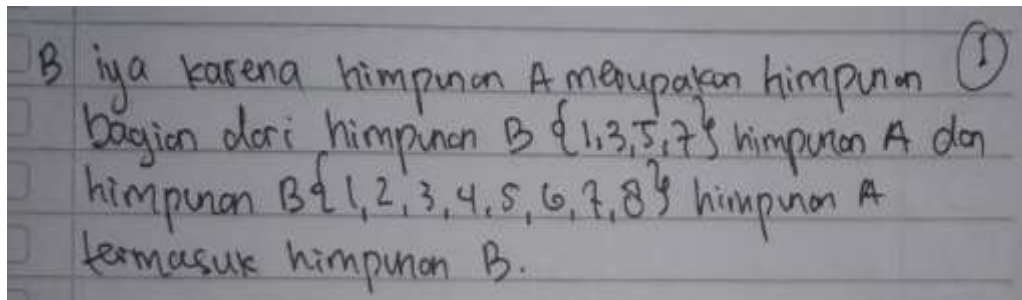 B iya karena himpunan A merupakan himpunan ①
bagian dari himpunan B {1,3,5,7} himpunan A dan
himpunan B{1,2,3,4,5,6,7,8} himpunan A
termasuk himpunan B.